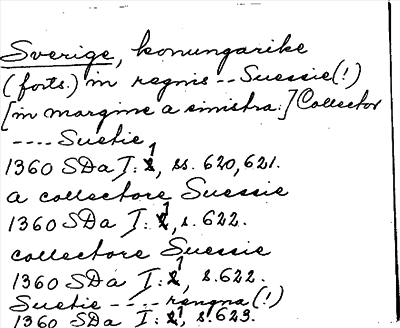 Sverige, konungarike
(forts.) in regnis -- Suessie(!)
[in margine a sinistra:] Collector
---- Suetie
1360 SDa I:1, ss. 620, 621.
a collectore Suessie
1360 SDa I:1, s. 622.
collectore Suessie
1360 SDa I:1, s. 622.
Suetie ---- rengna (!)
1360 SDa I:1, s. 623.